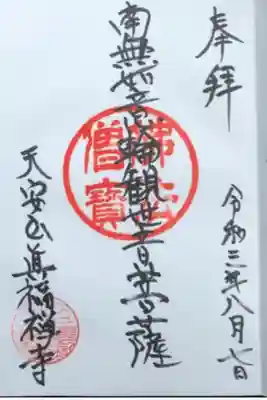 奉拝
令和三年八月七日
南無如意輪観世音菩薩
佛法
僧寶
天安山眞福禅寺